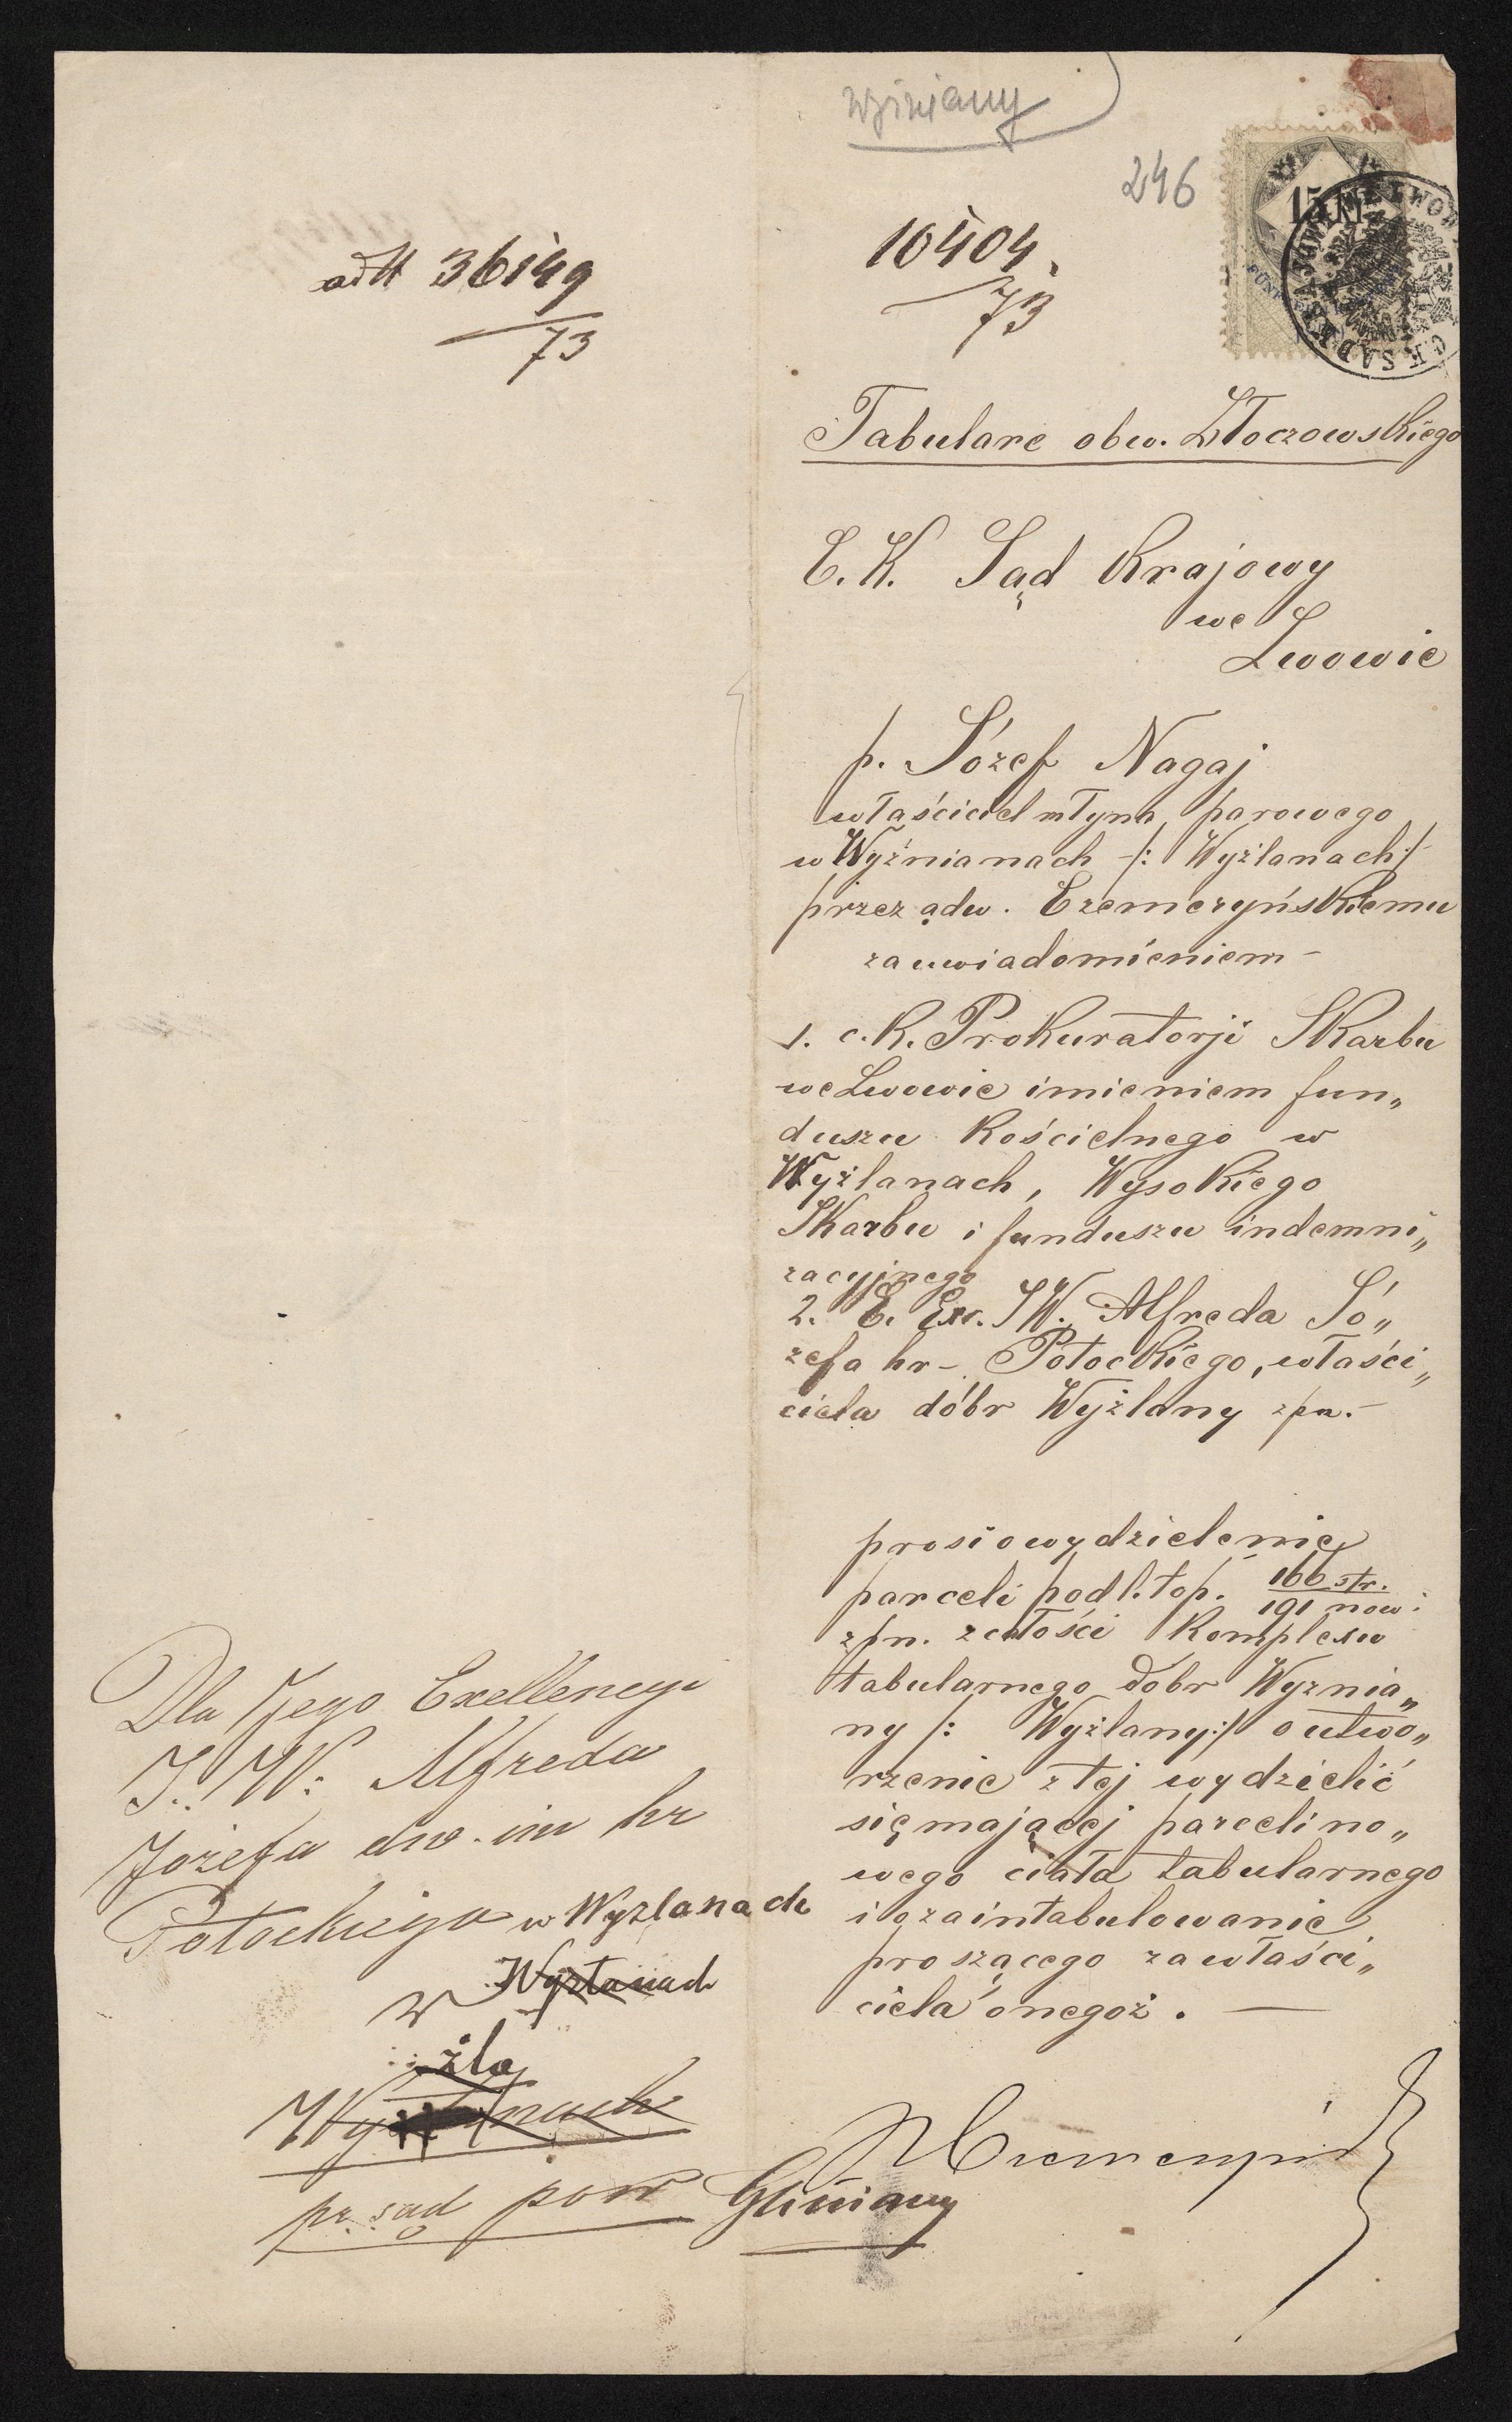 246
ad N 36149
73
10404
73
15 Kr
Tabulare obw. Złoczowskiego
C. K. Sąd Krajowy
we
Lwowie
p. Józef Nagaj
właściciel młyna parowego
w Wyźnianach /: Wyżlanach :/
przez adw. Czemeryńskiemu
zauwiadomieniem –
1. c. k. Prokuratorji Skarbu
we Lwowie imieniem fun„
duszu Kościelnego w
Wyżlanach, Wysokiego
Skarbu i funduszu indemni„
zacyjnego
2. E. Exc. JW. Alfreda Jó„
zefa hr – Potockiego, właści„
ciela dóbr Wyżlany zpn. –
prosi o wydzielenie
parceli pod l. top. 166 str.
191 now:
zpn. z całości Komplexu
tabularnego dóbr Wyznia„
ny /: Wyżlany :/ o utwo„
rzenie z tej wydzielić
się mającej parceli no„
wego ciała tabularnego
i o zaintabulowanie
proszącego za właści„
ciela onegoż. —
Dla Jego Excellencyi
J. W: Alfreda
Józefa dw. im hr
Potockiego w Wyzlanach
w
żla
pr. sąd pow Gliniany